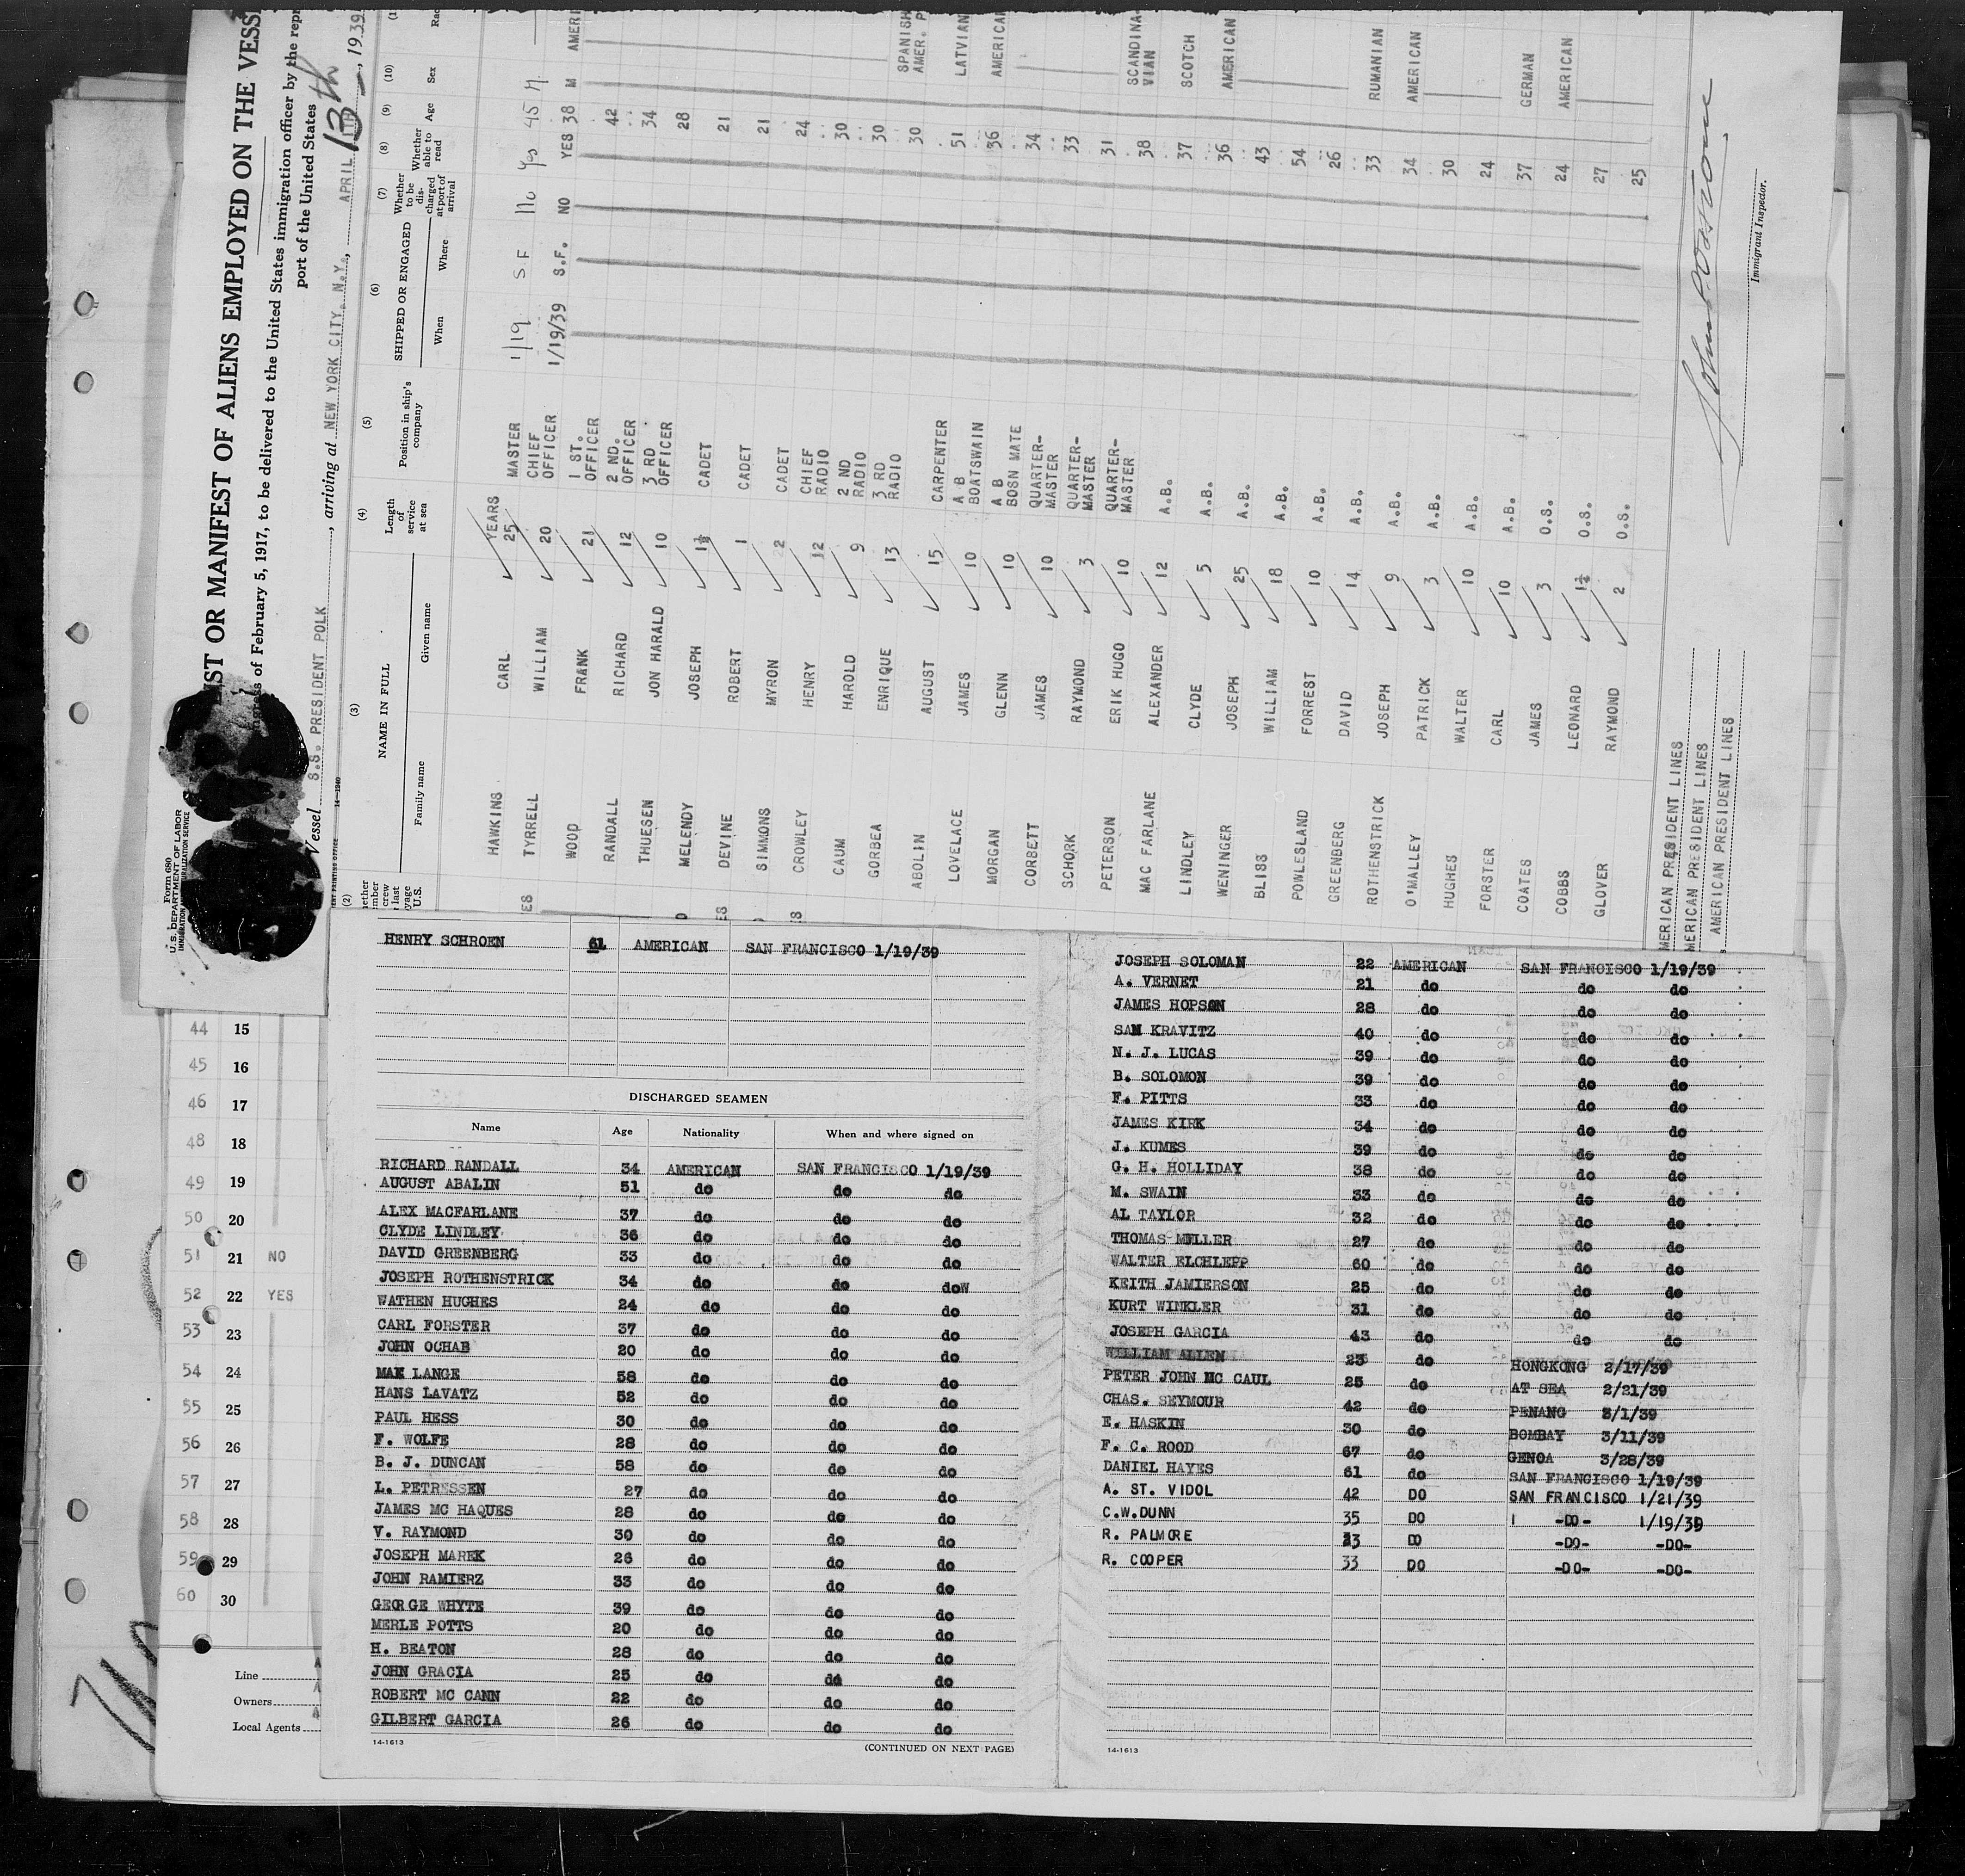 Form 680
U.S. DEPARTMENT OF LABOR
IMMIGRATION
LIST OR MANIFEST OF ALIENS EMPLOYED ON THE VESS
of February 5, 1917, to be delivered to the United States immigration officer by the repr
port of the United States
Vessel S.S. PRESIDENT POLK, arriving at NEW YORK CITY, N.Y., APRIL 13th, 1939
(2) (3) (4) (5) (6) (7) (8) (9) (10)
NAME IN FULL
Family name Given name
Length of service at sea
Position in ship's company
SHIPPED OR ENGAGED
When Where
Whether to be discharged at port of arrival
Whether able to read
Age
Sex
YEARS
HAWKINS CARL 25 MASTER 1/19 S.F no yes 45 M
TYRRELL WILLIAM 20 CHIEF OFFICER 1/19/39 S.F. NO YES 38 M AMERI
WOOD FRANK 21 1 ST. OFFICER 42
RANDALL RICHARD 12 2 ND. OFFICER 34
THUESEN JON HARALD 10 3 RD OFFICER 28
MELENDY JOSEPH 1½ CADET 21
DEVINE ROBERT 1 CADET 21
SIMMONS MYRON 2 CADET 24
CROWLEY HENRY 12 CHIEF RADIO 30
CAUM HAROLD 9 2 ND RADIO 30
GORBEA ENRIQUE 13 3 RD RADIO 30 SPANISH AMER. P
ABOLIN AUGUST 15 CARPENTER 51 LATVIAN
LOVELACE JAMES 10 A B BOATSWAIN 36 AMERICAN
MORGAN GLENN 10 A B BOSN MATE 34
CORBETT JAMES 10 QUARTER-MASTER 33
SCHORK RAYMOND 3 QUARTER-MASTER 31
PETERSON ERIK HUGO 10 QUARTER-MASTER 38 SCANDINA-VIAN
MAC FARLANE ALEXANDER 12 A.B. 37 SCOTCH
LINDLEY CLYDE 5 A.B. 36 AMERICAN
WENINGER JOSEPH 25 A.B. 43
BLISS WILLIAM 18 A.B. 54
POWLESLAND FORREST 10 A.B. 26
GREENBERG DAVID 14 A.B. 33 RUMANIAN
ROTHENSTRICK JOSEPH 9 A.B. 34 AMERICAN
O'MALLEY PATRICK 3 A.B. 30
HUGHES WALTER 10 A.B. 24
FORSTER CARL 10 A.B. 37 GERMAN
COATES JAMES 3 O.S. 24 AMERICAN
COBBS LEONARD 1½ O.S. 27
GLOVER RAYMOND 2 O.S. 25
MERICAN PRESIDENT LINES
MERICAN PRESIDENT LINES
AMERICAN PRESIDENT LINES
Immigrant Inspector.
HENRY SCHROEN 61 AMERICAN SAN FRANCISCO 1/19/39
DISCHARGED SEAMEN
Name Age Nationality When and where signed on
RICHARD RANDALL 34 AMERICAN SAN FRANCISCO 1/19/39
AUGUST ABALIN 51 do do do
ALEX MACFARLANE 37 do do do
CLYDE LINDLEY 36 do do do
DAVID GREENBERG 33 do do do
JOSEPH ROTHENSTRICK 34 do do doW
WATHEN HUGHES 24 do do do
CARL FORSTER 37 do do do
JOHN OCHAB 20 do do do
MAX LANGE 58 do do do
HANS LAVATZ 52 do do do
PAUL HESS 30 do do do
F. WOLFE 28 do do do
B. J. DUNCAN 58 do do do
L. PETRESSEN 27 do do do
JAMES MC HAQUES 28 do do do
V. RAYMOND 30 do do do
JOSEPH MAREK 26 do do do
JOHN RAMIERZ 33 do do do
GEORGE WHYTE 39 do do do
MERLE POTTS 20 do do do
H. BEATON 28 do do do
JOHN GRACIA 25 do do do
ROBERT MC CANN 22 do do do
GILBERT GARCIA 26 do do do
14-1613 (CONTINUED ON NEXT PAGE)
JOSEPH SOLOMAN 22 AMERICAN SAN FRANCISCO 1/19/39
A. VERNET 21 do do do
JAMES HOPSON 28 do do do
SAM KRAVITZ 40 do do do
N. J. LUCAS 39 do do do
B. SOLOMON 39 do do do
F. PITTS 33 do do do
JAMES KIRK 34 do do do
J. KUMES 39 do do do
G. H. HOLLIDAY 38 do do do
M. SWAIN 33 do do do
AL TAYLOR 32 do do do
THOMAS MILLER 27 do do do
WALTER ELCHLEPP 60 do do do
KEITH JAMIERSON 25 do do do
KURT WINKLER 31 do do do
JOSEPH GARCIA 43 do do do
WILLIAM ALLEN 23 do HONGKONG 2/17/39
PETER JOHN MC CAUL 25 do AT SEA 2/21/39
CHAS. SEYMOUR 42 do PENANG 3/1/39
E. HASKIN 30 do BOMBAY 3/11/39
F. C. ROOD 67 do GENOA 3/28/39
DANIEL HAYES 61 do SAN FRANCISCO 1/19/39
A. ST. VIDOL 42 DO SAN FRANCISCO 1/21/39
C.W.DUNN 35 DO -DO- 1/19/39
R. PALMORE 23 DO -DO- -DO-
R. COOPER 33 DO -DO- -DO-
14-1613
44 15
45 16
46 17
48 18
49 19
50 20
51 21 NO
52 22 YES
53 23
54 24
55 25
56 26
57 27
58 28
59 29
60 30
Line
Owners
Local Agents